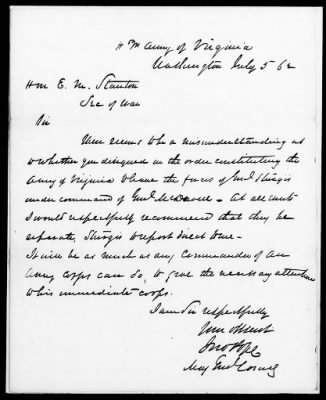 Hd Army of Virginia
Washington July 5 62
Hon E. M. Stanton
Sec of War
Sir
There seems to be a misunderstanding as
to whether you designed in the order constituting the
Army of Virginia to have the forces of Genl Sturgis
under command of Genl McDowell - At all events
I would respectfully recommend that they be
separate, Sturgis to report direct to me -
It will be as much as any Commander of an
Army Corps can do, to give the necessary attention
to his immediate corps.
I am Sir respectfully
Your obt Servt
Jno Pope
Maj Genl Comdg